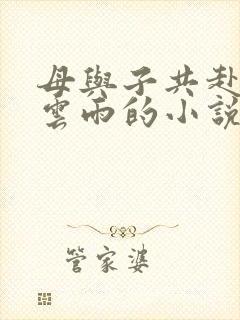 母與子共赴
雲雨的小說
管家婆